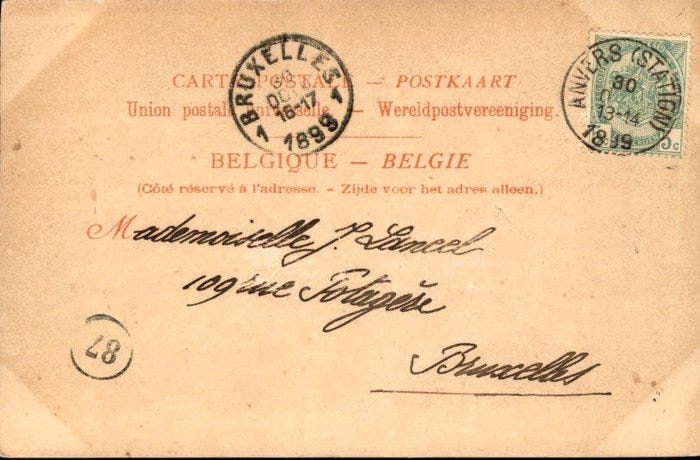 CARTE POSTALE — POSTKAART
Union postale universelle. — Wereldpostvereeniging.
BELGIQUE — BELGIE
(Côté réservé à l'adresse. - Zijde voor het adres alleen.)
BRUXELLES
30
OCT
16-17
1899
1 1
ANVERS (STATION)
30
13-14
1899
5c
Mademoiselle J. Lancel
109 rue
Bruxelles
87